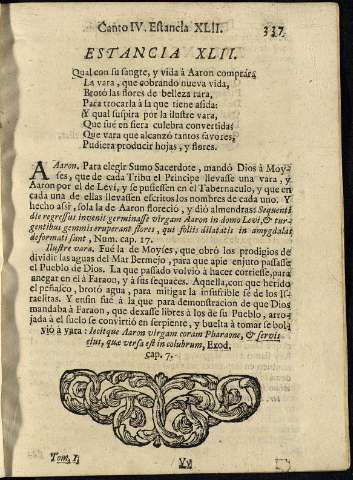 Canto IV. Estancia XLII. 337
ESTANCIA XLII.
Qual con su sangre, y vida à Aaron compràra
La vara, que cobrando nueva vida,
Brotò las flores de belleza rara,
Para trocarla à la que tiene asida:
Y qual suspira por la ilustre vara,
Que fuè en fiera culebra convertida;
Que vara que alcanzò tantos favores,
Pudiera producir hojas, y flores.
A Aaron. Para elegir Sumo Sacerdote, mandò Dios à Moy-
sès, que de cada Tribu el Principe llevasse una vara, y
Aaron por el de Levi, y se pusiessen en el Tabernaculo, y que en
cada una de ellas llevassen escritos los nombres de cada uno. Y
hecho assi, sola la de Aaron floreciò, y diò almendras: Sequenti
die regressus invenit germinasse virgam Aaron in domo Levi, & tur-
gentibus gemmis eruperant flores, qui foliis dilatatis in amygdalas
deformati sunt, Num. cap. 17.
Ilustre vara. Fuè la de Moyses, que obrò los prodigios de
dividir las aguas del Mar Bermejo, para que apie enjuto passasse
el Pueblo de Dios. La que passado volviò à hacer corriesse, para
anegar en el à Faraon, y à sus sequaces. Aquella, con que herido
el peñasco, brotò agua, para mitigar la insufrible sè de los Is-
raelitas. Y en fin fuè à la que para demonstracion de que Dios
mandaba à Faraon, que dexasse libres à los de su Pueblo, arro-
jada à el suelo se convirtiò en serpiente, y buelta à tomar se bol-
viò à vara: tulitque Aaron virgam coram Pharaone, & servis
eius, quæ versa est in colubrum, Exod.
cap. 7.
Tom. I. Vv